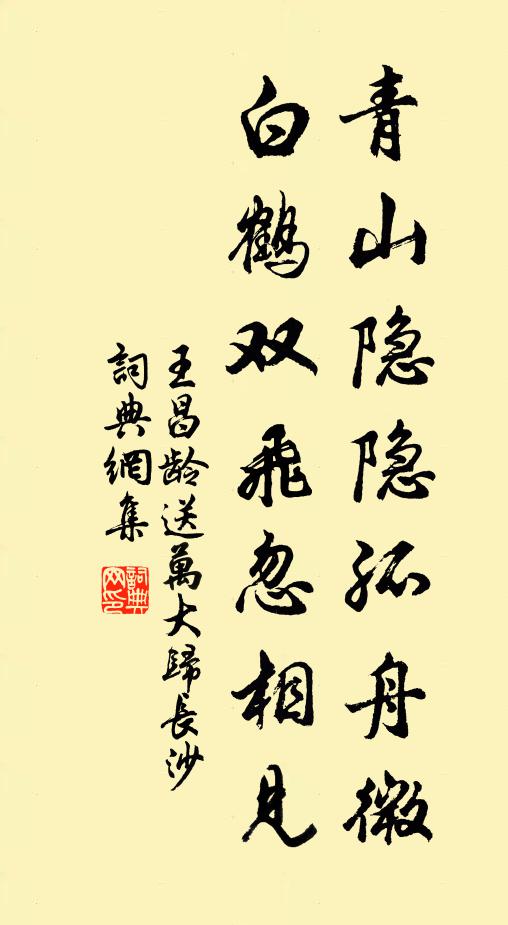 青山隐隐孤舟微
白鹤双飞忽相见
王昌龄送萬大歸長沙
詞典網集
詞典網印